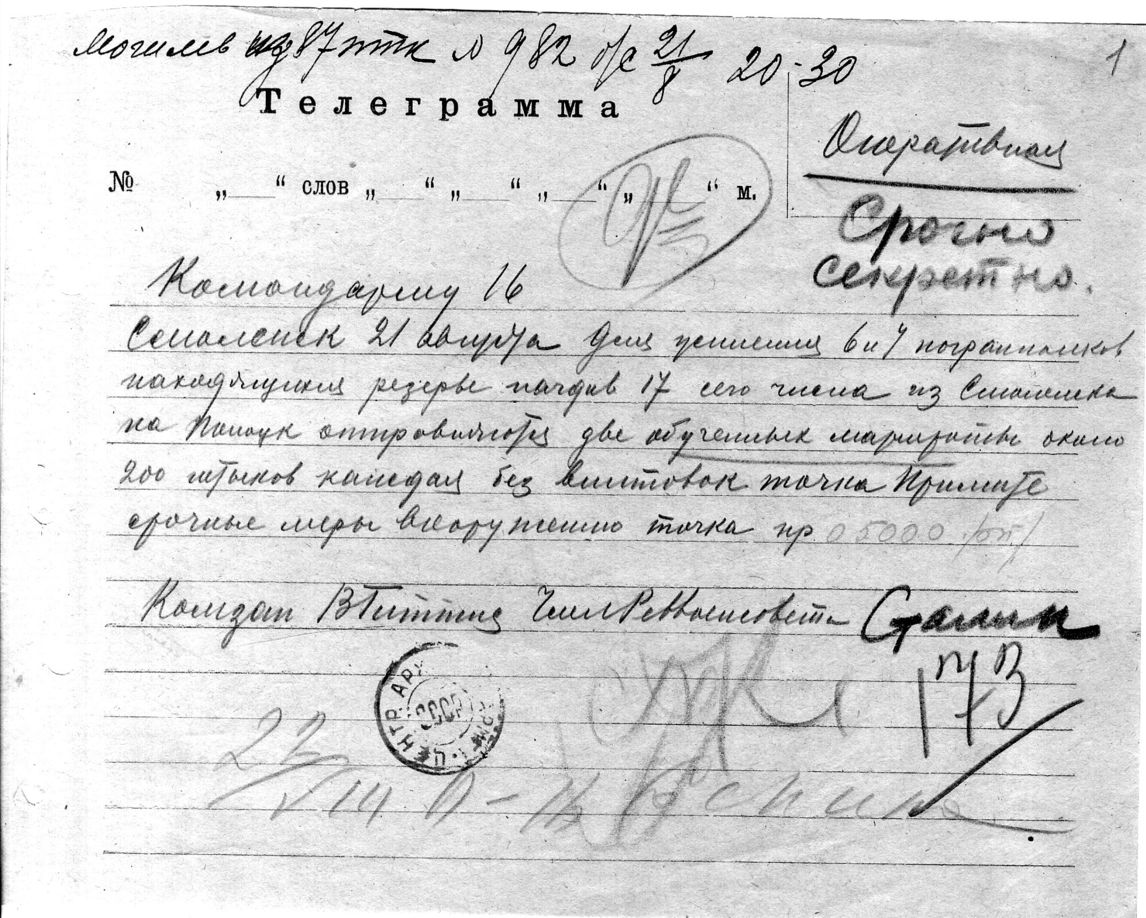 Могилев из 87 птк № 982 о/с 21/8 20-30
1
Телеграмма
№ „ “ слов „ “ „ “ „ “ „ “ м.
Оперативная
Срочно
секретно.
Командарму 16
Смоленск 21 августа для усиления 6 и 7 погранполков
находящихся резерве начдив 17 сего числа из Смоленска
на Полоцк отправляются две обученных маршроты около
200 штыков каждая без винтовок точка Примите
срочные меры вооружению точка нр 05000 /оп/
Комзап ВГиттис Член Реввоенсовета Сталин
173
ЦЕНТР. АРХ
СССР
23/VIII